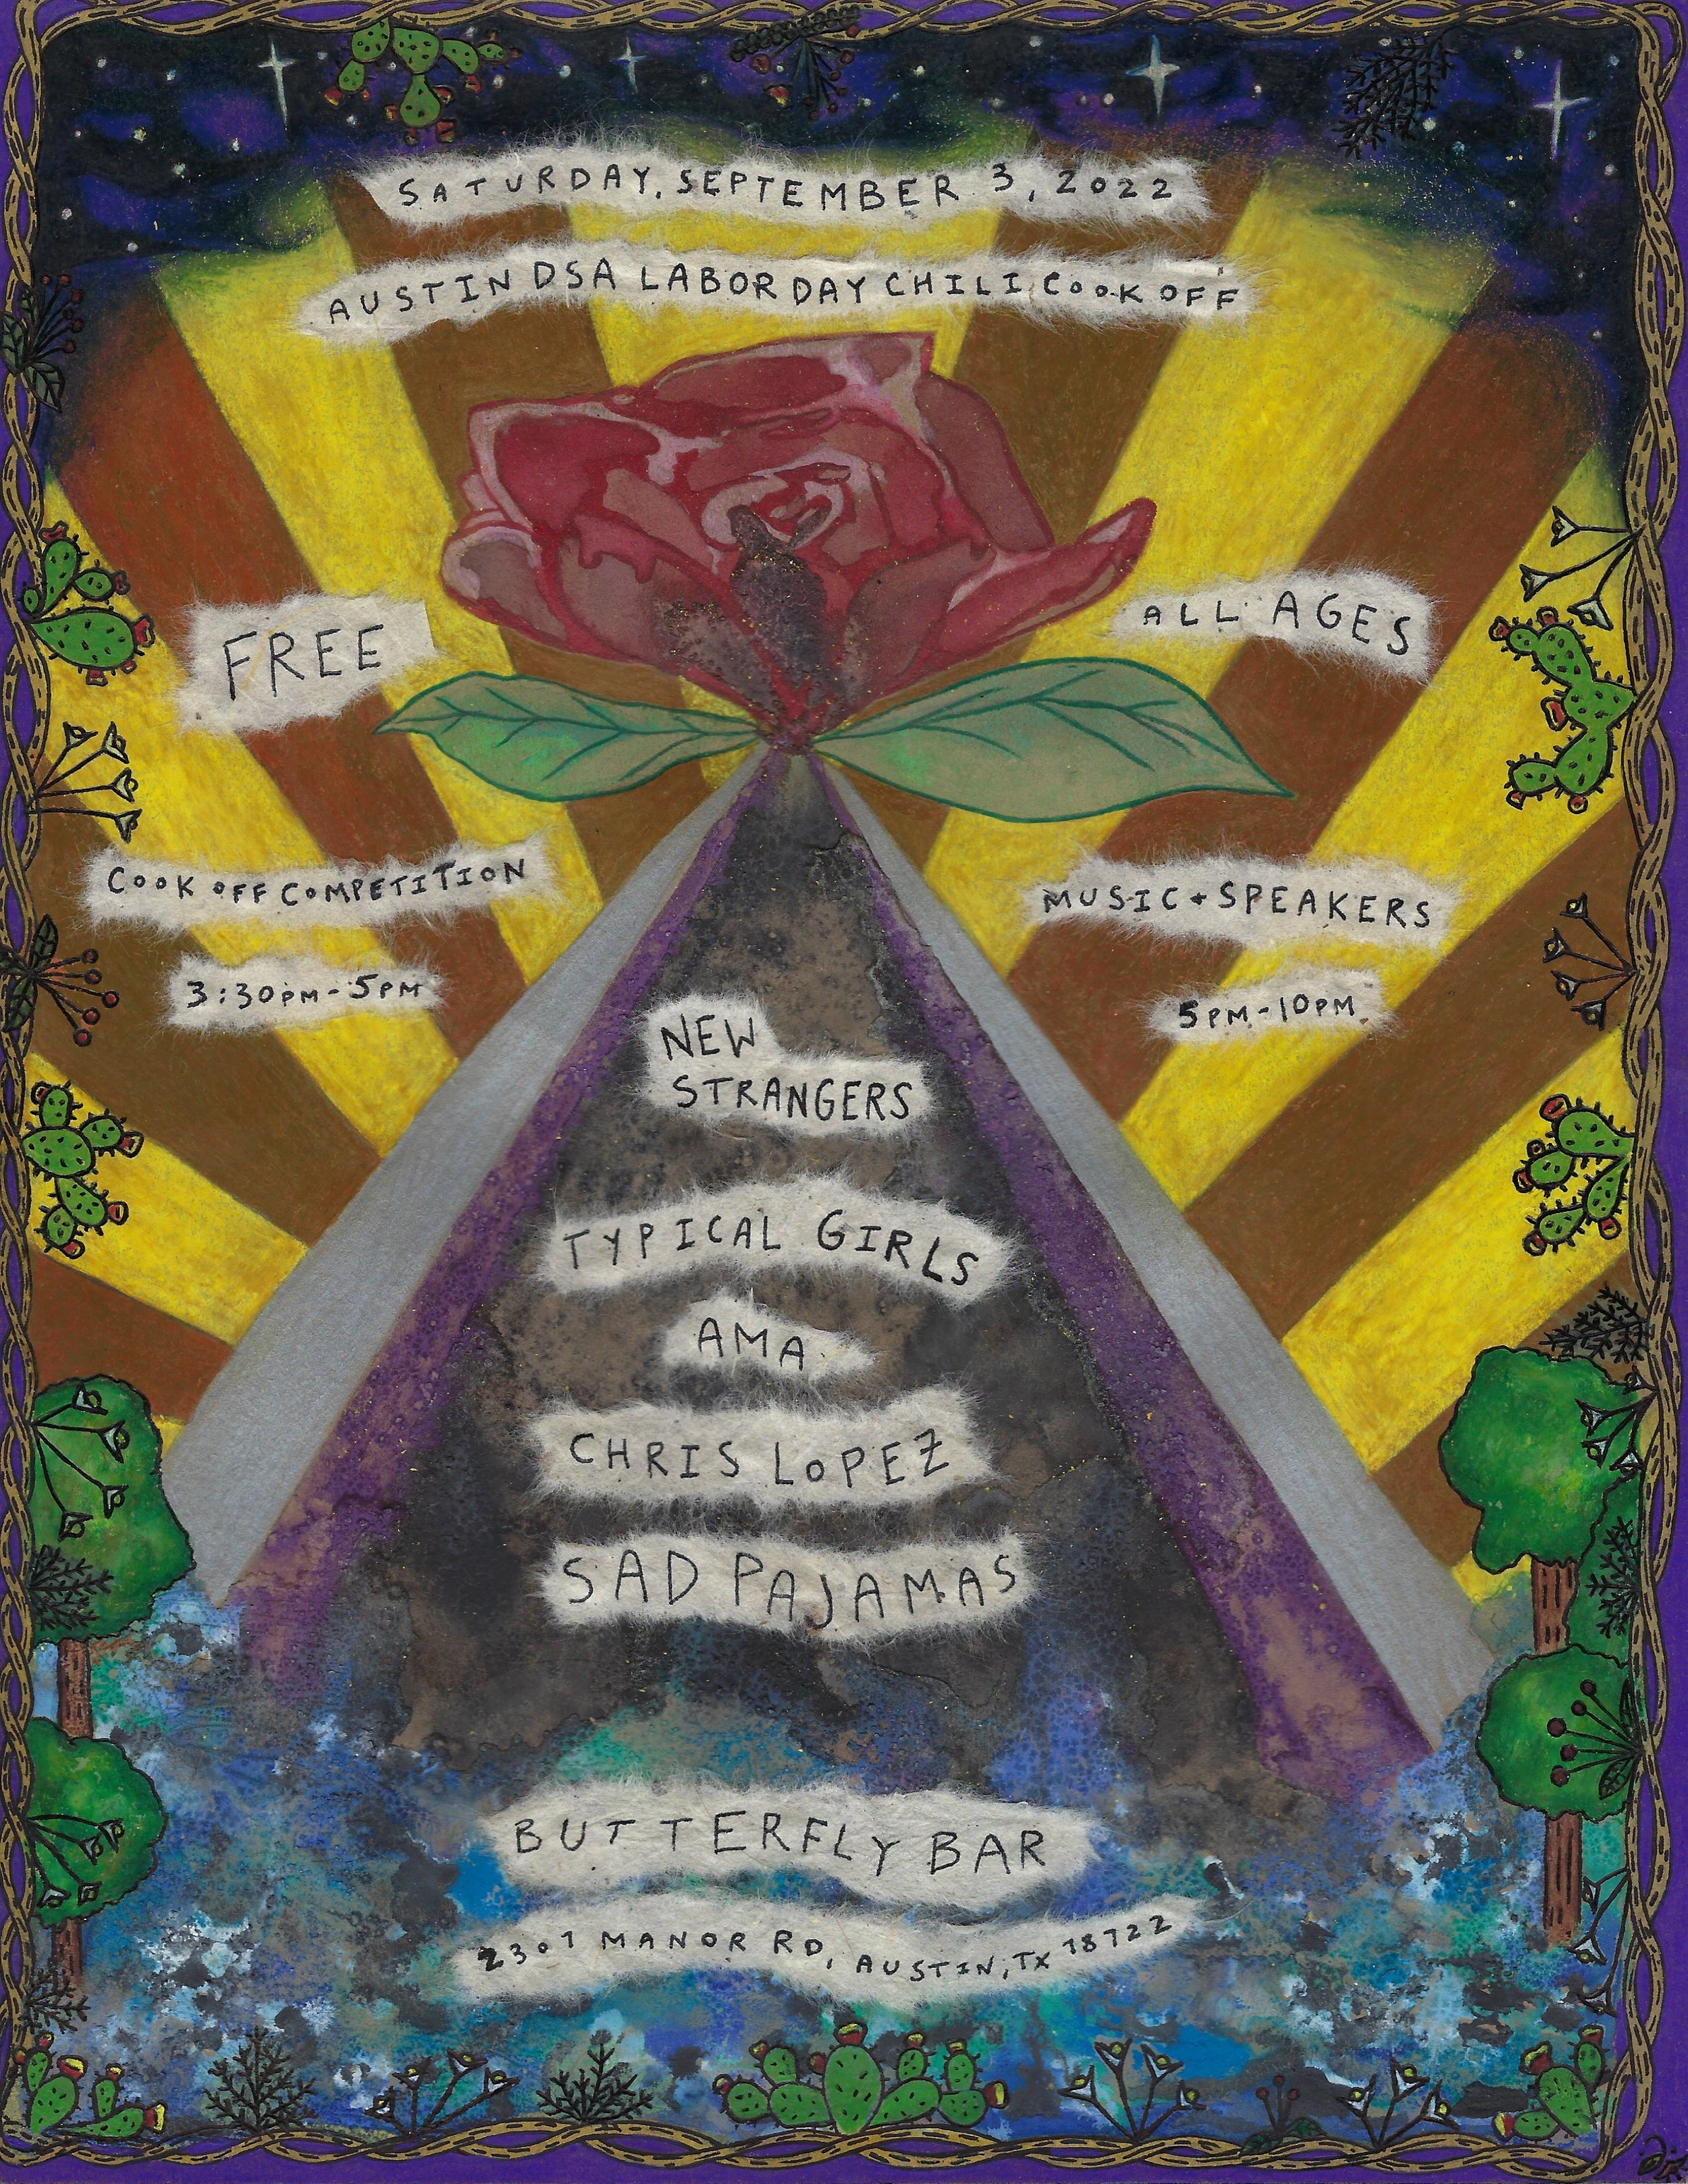 SATURDAY, SEPTEMBER 3, 2022
AUSTIN DSA LABOR DAY CHILI COOK OFF
FREE
ALL AGES
COOK OFF COMPETITION
3:30PM-5PM
MUSIC + SPEAKERS
5PM-10PM
NEW
STRANGERS
TYPICAL GIRLS
AMA
CHRIS LOPEZ
SAD PAJAMAS
BUTTERFLY BAR
2307 MANOR RD, AUSTIN, TX 78722